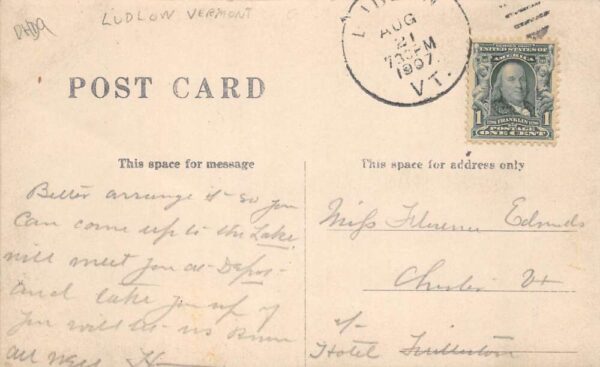 DHD9
LUDLOW VERMONT
LUDLOW
AUG
21
730PM
1907
VT.
POST CARD
SERIES 1902
UNITED STATES OF
AMERICA
1 FRANKLIN 1
POSTAGE
ONE CENT
This space for message
This space for address only
Better arrange it so you
can come up to the Lake.
will meet you at Depot
and take you up if
you will let us know
all well H
Miss Florence Edmds
Chester Vt
c/-
Hotel Fullerton